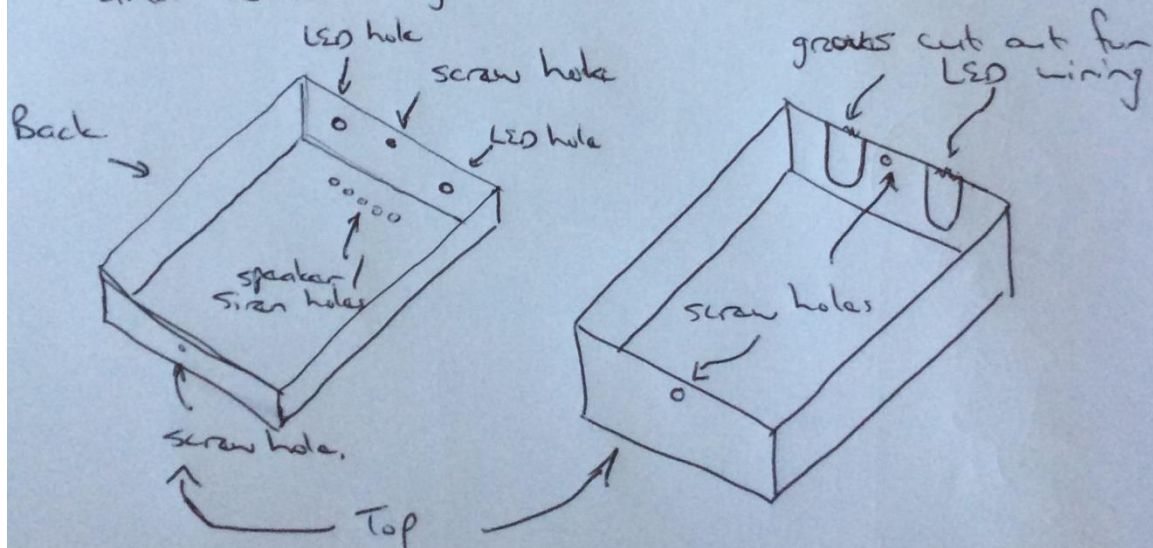 LED hole
screw hole
LED hole
Back
speaker/
siren holes
screw hole.
Top
grooves cut out for
LED wiring
screw holes